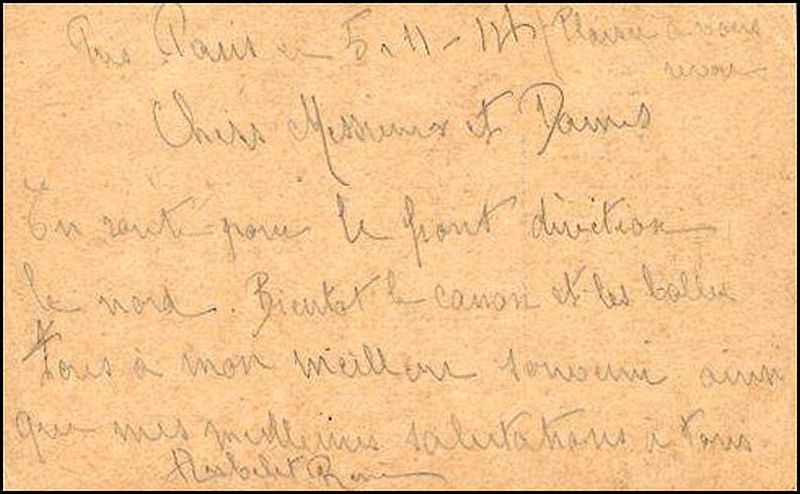 Près Paris le 5-11-14 / Plaisir à vous
revoir
Chers Messieurs et Dames
En route pour le front direction
le nord. Bientot le canon et les balles
Tous à mon meilleur souvenir ainsi
que mes meilleures salutations à tous